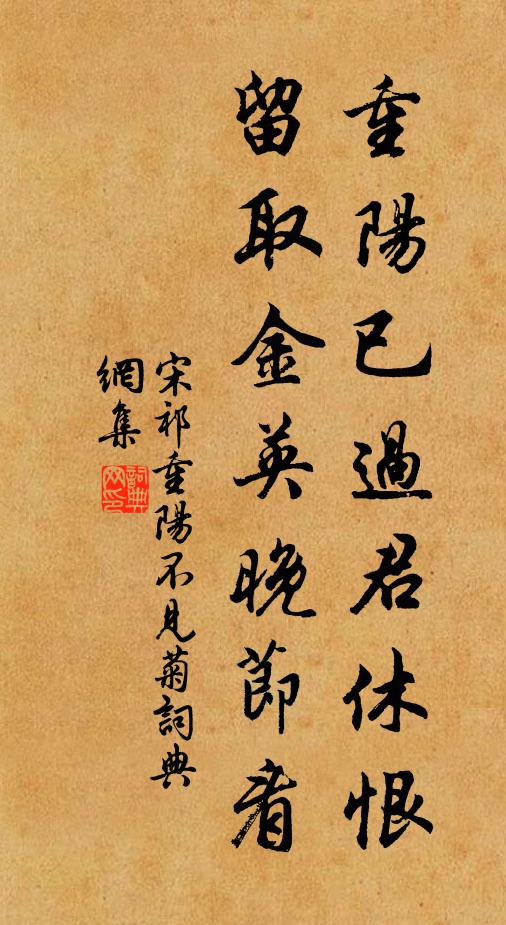 重陽已過君休恨
留取金英晚節看
宋祁重陽不見菊詞典
網集
詞典
网印